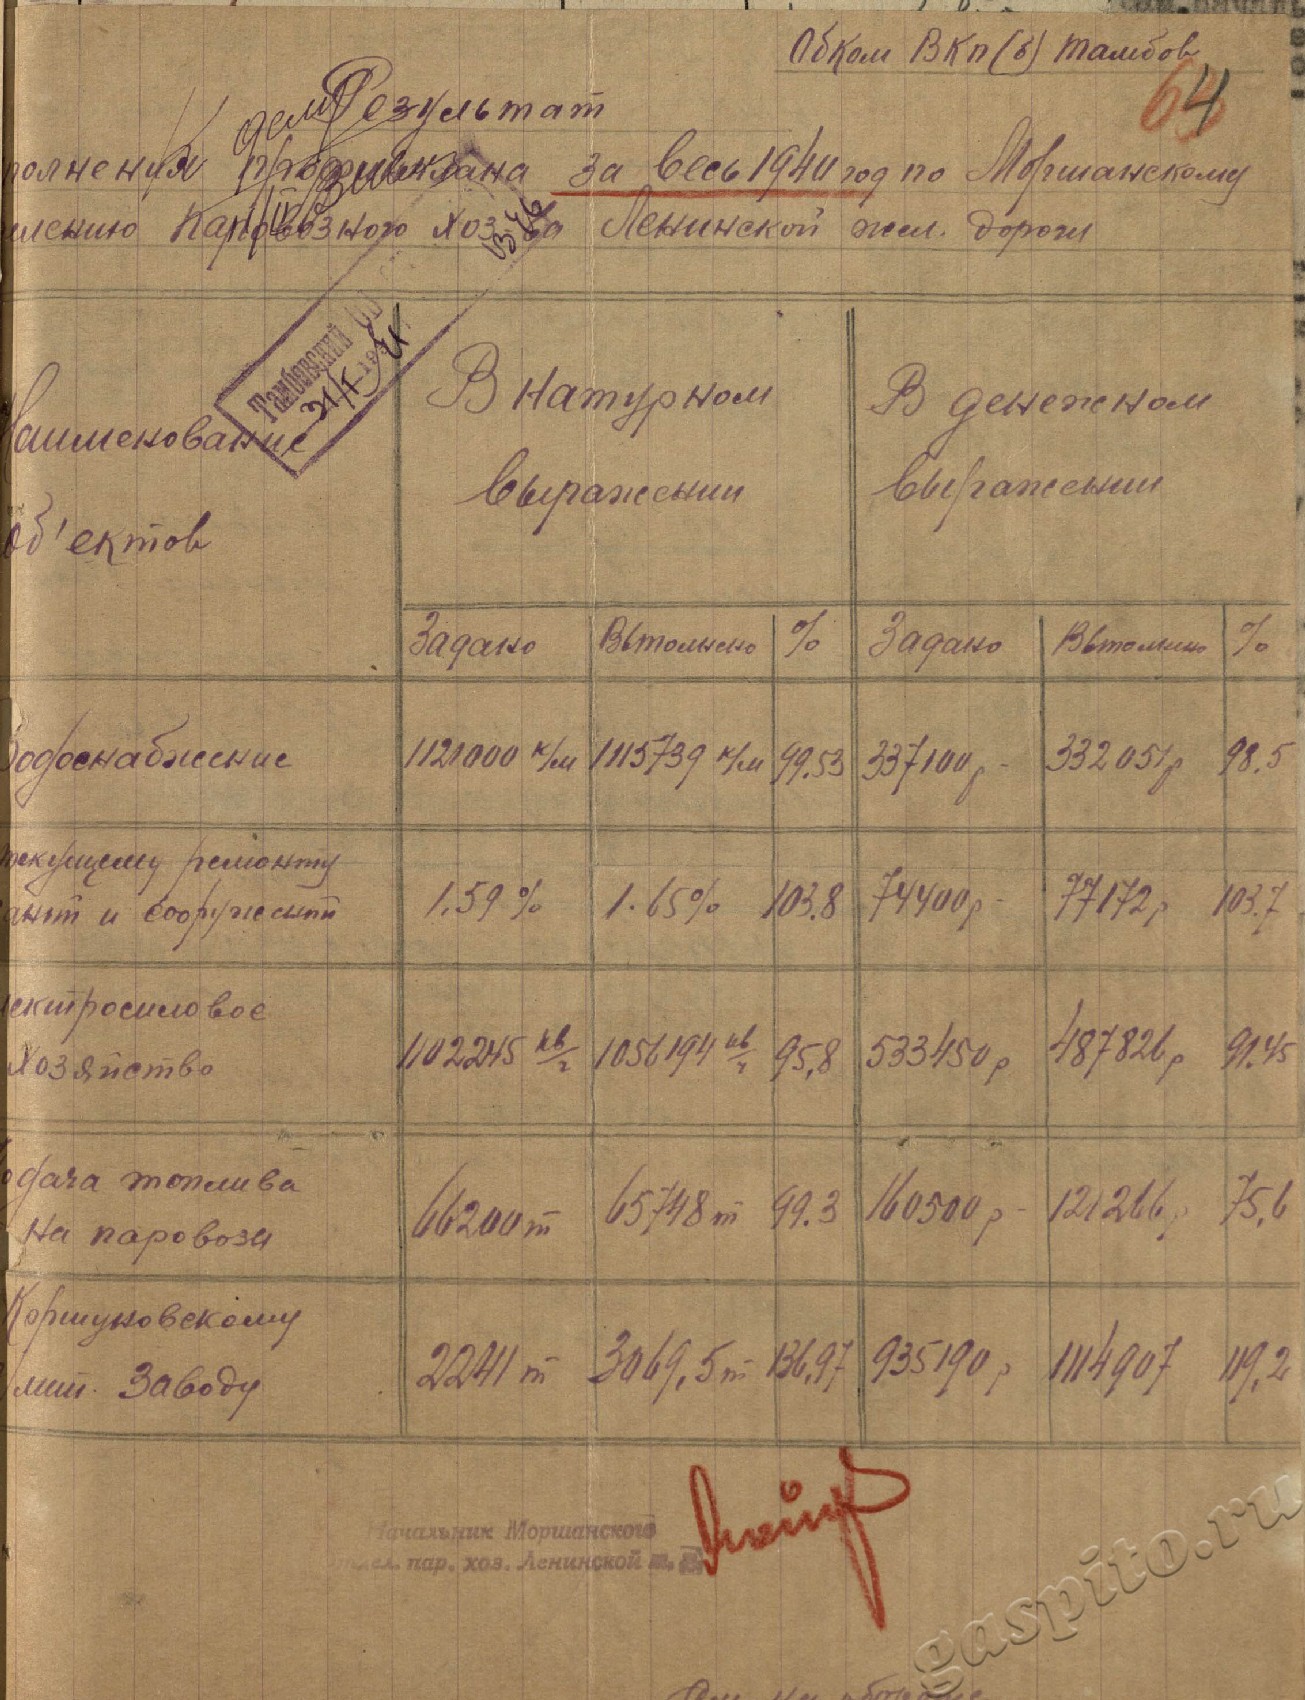 Обком ВКП(б) Тамбов
64
Результат
полнения профинплана за весь 1940 год по Моршанскому
лению паровозного хоз-ва Ленинской жел. дороги
13-46
Тамбовский
Наименование
об'ектов
В натурном
выражении
В денежном
выражении
Задано Выполнено % Задано Выполнено %
Водоснабжение 1121000 к/м 1115739 к/м 99.53 337100 р - 332051 р 98.5
текущему ремонту
и сооружений 1.59 % 1.65 % 103.8 74400 р - 77172 р 103.7
лектросиловое
хозяйство 1102245 кв/ч 1056194 кв/ч 95,8 533450 р 487826 р 91.45
одача топлива
на паровозы 66200 т 65748 т 99.3 160500 р - 121266 р 75,6
Коршуновскому
заводу 2241 т 3069,5 т 136,97 935190 р 1114907 119,2
Начальник Моршанского
отдел. пар. хоз. Ленинской ж. д.
gaspito.ru